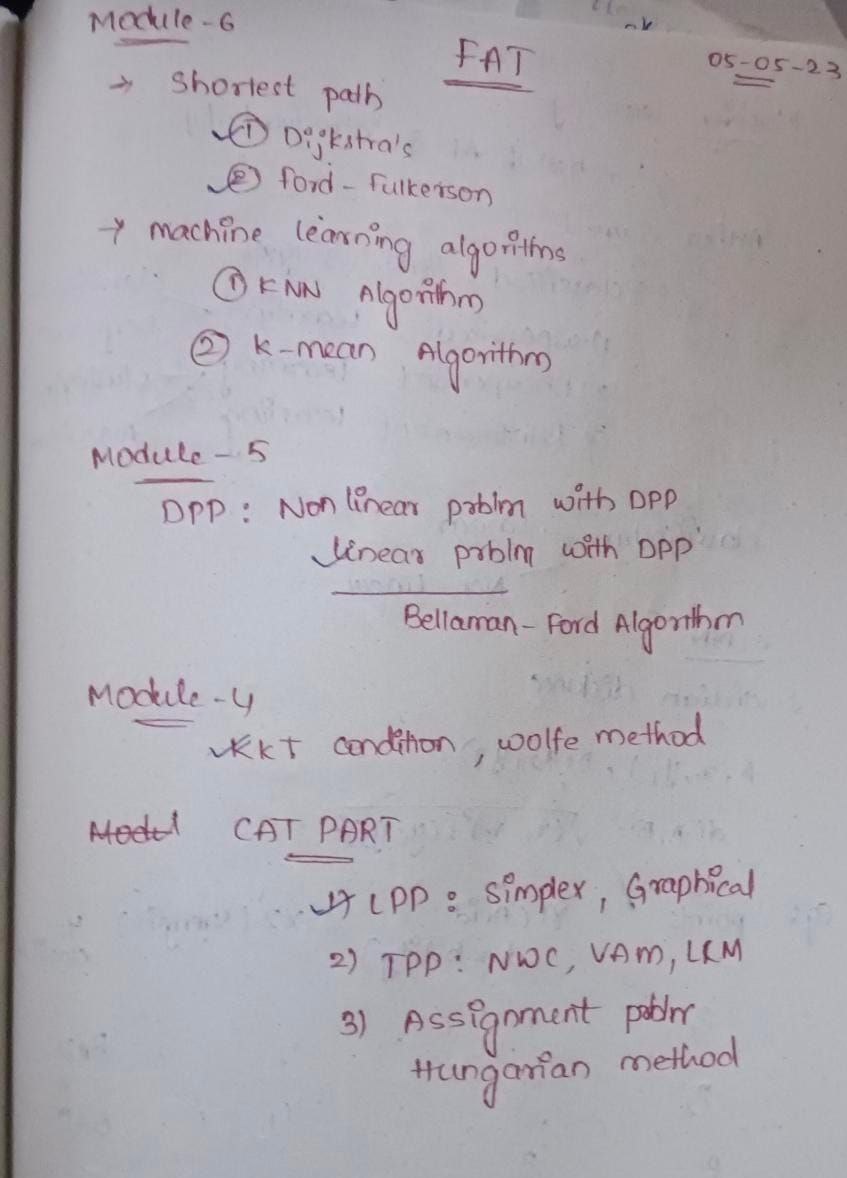 Module - 6
FAT
05-05-23
→ Shortest path
① Dijkstra's
② Ford - Fulkerson
→ machine learning algorithms
① KNN Algorithm
② K-mean Algorithm
Module - 5
DPP : Non linear prblm with DPP
linear prblm with DPP
Bellaman - Ford Algorithm
Module - 4
KKT condition, wolfe method
CAT PART
1) LPP : Simplex, Graphical
2) TPP : NWC, VAM, LRM
3) Assignment problm
Hungarian method